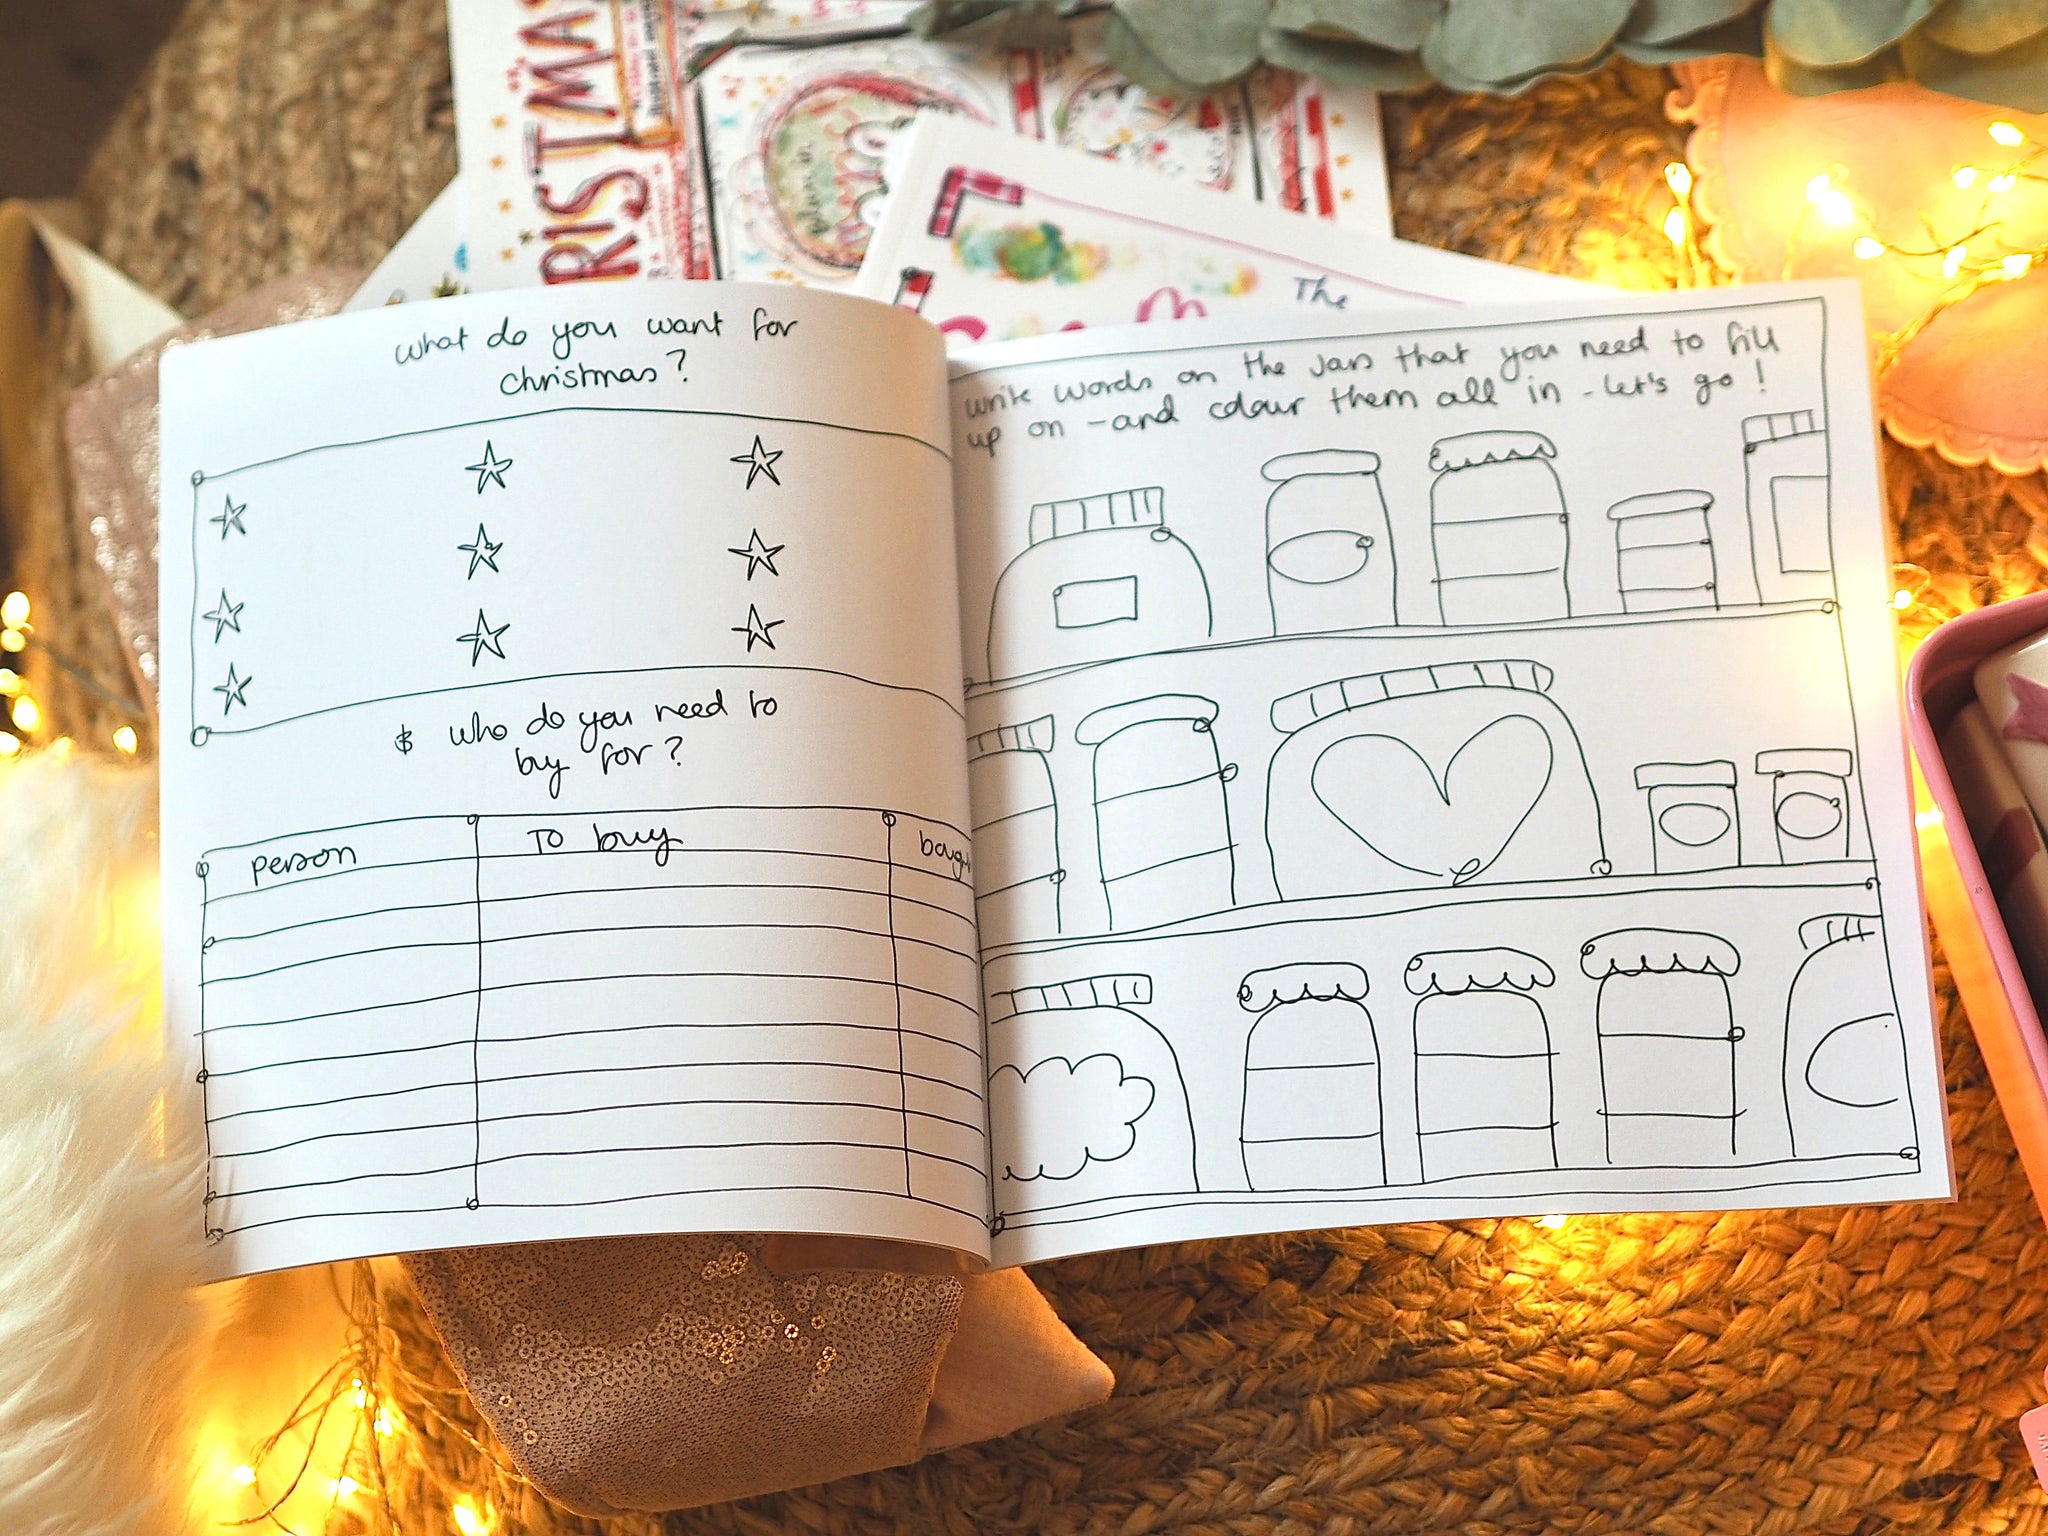 What do you want for
Christmas?
& who do you need to
buy for?
person
To buy
Write words on the jars that you need to fill
up on - and colour them all in - let's go!
RISTMAS
The